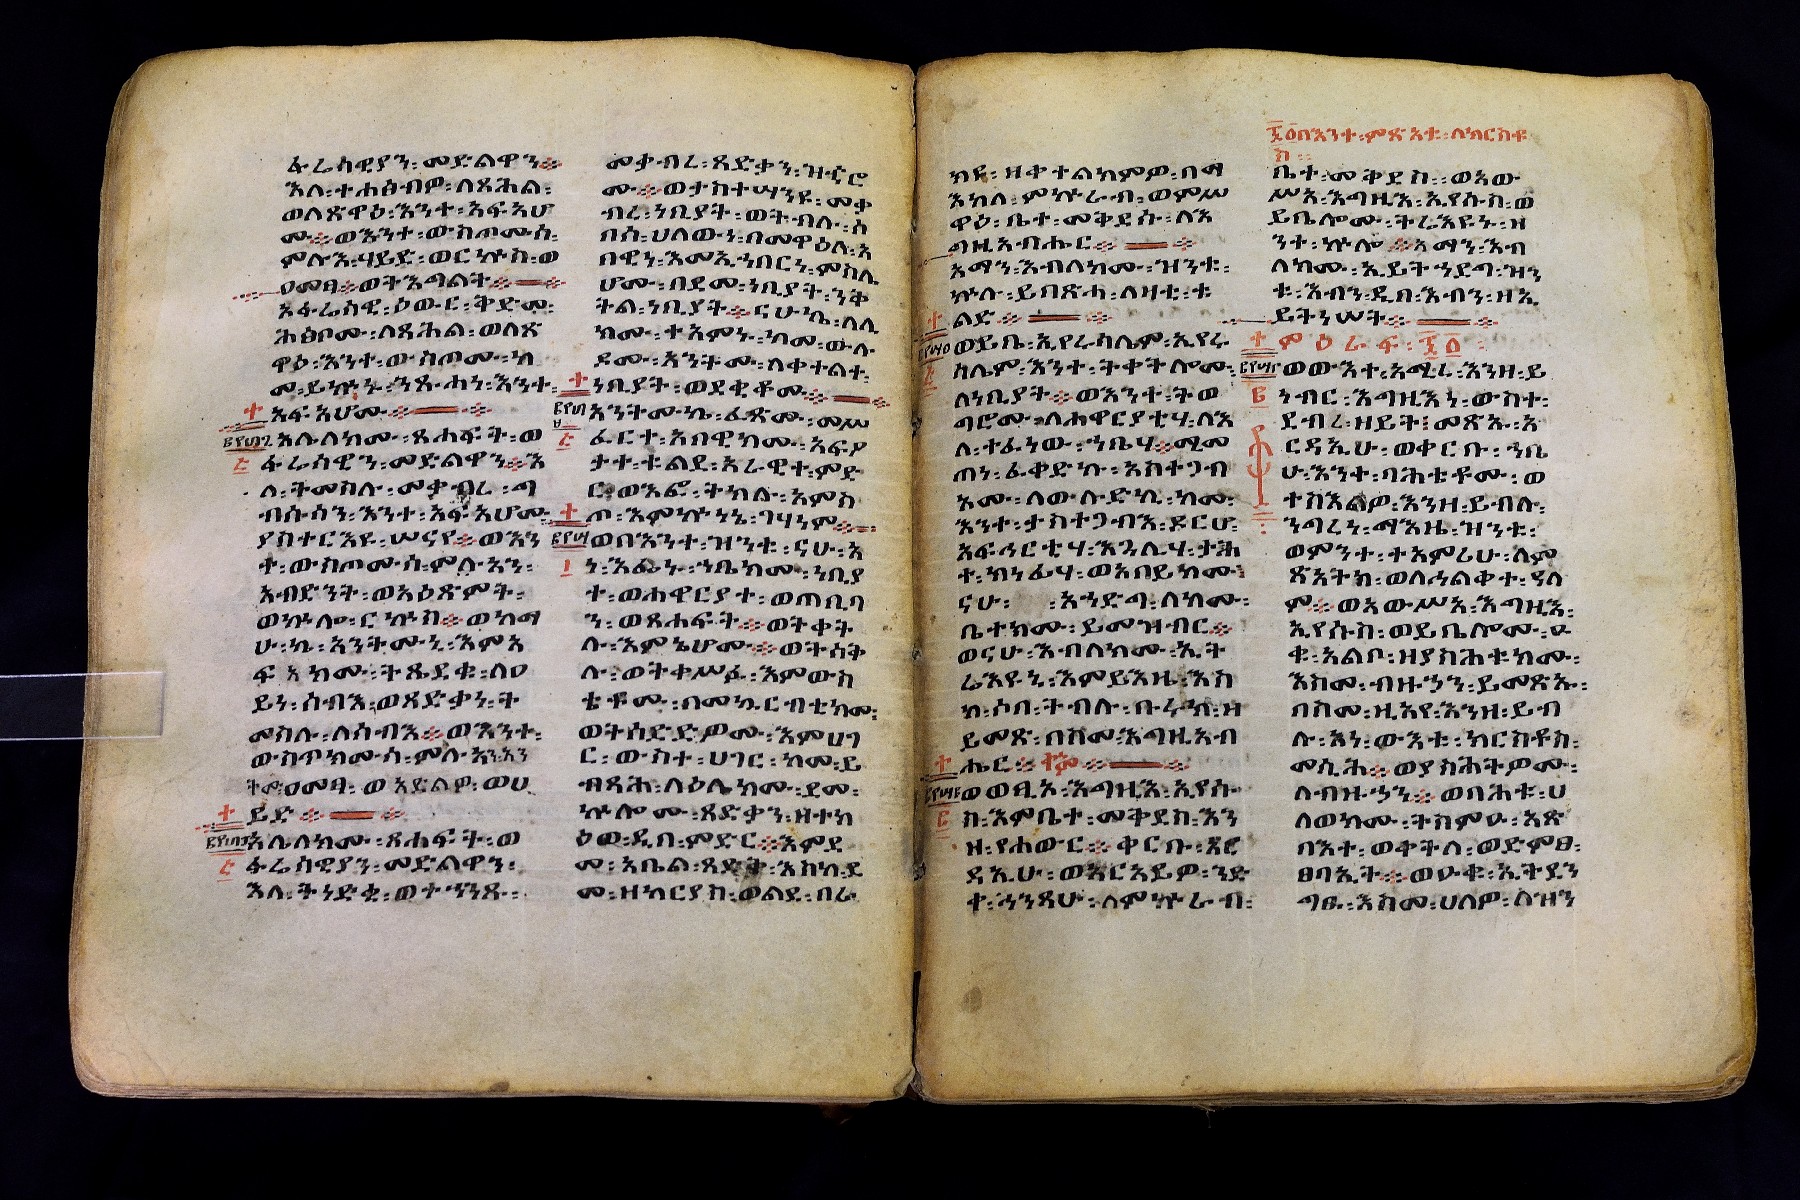 ፈራስዊያን፡መድልዋን።
እለ፡ተሐፅብዎ፡ለጻሕል፡
ወለጽዋዕ፡እንተ፡አፍአሆ
ሙ።ወእንተ፡ውስጦሙሰ፡
ምሉእ፡ሃይደ፡ወርኵሰ፡ወ
ዐመፃ።ወትእግልት።
አፈራስዊ፡ዕውር፡ቅድመ፡
ሕፅቦሙ፡ለጻሕል፡ወለጽ
ዋዕ፡እንተ፡ውስጦሙ፡ከ
መ፡ይኩን፡ንጹሐነ፡እንተ፡
አፍአሆሙ።
አሌለክሙ፡ጸሐፍት፡ወ
ፈራስዊን፡መድልዋን።እ
ለ፡ትመስሉ፡መቃብረ፡ግ
ብሱሳን፡እንተ፡አፍአሆሙ፡
ያስተርእዩ፡ሠናየ።ወእን
ተ፡ውስጦሙሰ፡ምሉአን፡
አብድንት፡ወአዕጽምት፡
ወኵሎ፡ርኵስ።ወከማ
ሁኬ፡አንትሙኒ፡እምአ
ፍአክሙ፡ትጼደቁ፡ለዐ
ይነ፡ሰብእ፡ወጻድቃነ፡ት
መስሉ፡ለሰብእ።ወእንተ፡
ውስጥክሙሰ፡ምሉአን፡አን
ትሙ፡ዐመፃ፡ወአድልዎ፡ወሀ
ይድ።
አሌለክሙ፡ጸሐፍት፡ወ
ፈራስዊያን፡መድልዋን፡
እለ፡ትነድቁ፡ወተኀንጹ፡
መቃብረ፡ጻድቃን፡ዝኂሮ
ሙ።ወታስተሣንዩ፡መቃ
ብረ፡ነቢያት፡ወትብሉ፡ሶ
በሰ፡ሀለውነ፡በመዋዕለ፡አ
በዊነ፡እመኢኀበርነ፡ምስሌ
ሆሙ፡በደመ፡ነቢያት፡ንቅ
ትል፡ነቢያት።ናሁኬ፡ለሊ
ክሙ፡ተአምኑ፡ከመ፡ውሉ
ዶሙ፡አንትሙ፡ለቀተልተ፡
ነቢያት፡ወደቂቆሙ።
አንትሙኬ፡ፈጽሙ፡መሥ
ፈርተ፡አበዊክሙ፡አፍያ
ታተ፡ቱልደ፡አራዊተ፡ምድ
ር፡ወእፎ፡ትክሉ፡አምስ
ጦ፡እምኵነኔ፡ገሃነም።
ወበእንተ፡ዝንቱ፡ናሁ፡አ
ነ፡እፌኑ፡ኀቤክሙ፡ነቢያ
ተ፡ወሐዋርያተ፡ወጠቢባ
ን፡ወጸሐፍት።ወትቀት
ሉ፡እምኔሆሙ።ወትሰቅ
ሉ፡ወትቀሥፉ፡እምውስ
ቴቶሙ፡በመኳርብቲክሙ፡
ወትሰድድዎሙ፡እምሀገ
ር፡ውስተ፡ሀገር፡ከመ፡ይ
ብጻሕ፡ለዕሌክሙ፡ደመ፡
ኵሎሙ፡ጻድቃን፡ዘተክ
ዕወ፡ዲበ፡ምድር።እምደ
መ፡አቤል፡ጻድቅ፡እስከ፡ደ
መ፡ዘካርያስ፡ወልደ፡በራ
ክዩ፡ዘቀተልክምዎ፡በማ
እከለ፡ምኵራብ፡ወምሥ
ዋዕ፡ቤተ፡መቅደሱ፡ለእ
ግዚአብሔር።
አማን፡እብለክሙ፡ዝንቱ፡
ኵሉ፡ይበጽሓ፡ለዛቲ፡ት
ልድ።
ወይቤ፡ኢየሩሳሌም፡ኢየሩ
ሳሌም፡እንተ፡ትቀትሎሙ፡
ለነቢያት።ወእንተ፡ትወ
ግሮሙ፡ለሐዋርያቲሃ፡ለእ
ለ፡ተፈነው፡ኀቤሃ።ሚመ
ጠነ፡ፈቀድኩ፡አስተጋብ
አሙ፡ለውሉድኪ፡ከመ፡
እንተ፡ታስተጋብእ፡ዶርሆ፡
አፍሓርቲሃ፡እንሊሃ፡ታሕ
ተ፡ክነፊሃ፡ወአበይክሙ፡
ናሁ፡ አኀድግ፡ለክሙ፡
ቤተክሙ፡ይመዝብር።
ወናሁ፡እብለክሙ፡ኢት
ሬእዩኒ፡እምይእዜ፡እስ
ከ፡ሶበ፡ትብሉ፡ቡሩክ፡ዘ
ይመጽ፡በስመ፡እግዚአብ
ሔር።
ወወፂአ፡እግዚእ፡ኢየሱ
ስ፡እምቤተ፡መቅደስ፡እን
ዘ፡የሐውር።ቀርቡ፡አር
ዳኢሁ፡ወአርአይዎ፡ንድ
ተ፡ሕንጻሁ፡ለምኵራብ፡
፲ወበእንተ፡ምጽአቱ፡ለክርስቶ
ስ።
ቤተ፡መቅደስ፡ወአው
ሥአ፡እግዚእ፡ኢየሱስ፡ወ
ይቤሎሙ፡ትሬእዩኑ፡ዘ
ንተ፡ኵሎ።አማን፡እብ
ለክሙ፡ኢይትኀደግ፡ዝን
ቱ፡እብን፡ዲበ፡እብን፡ዘኢ
ይትነሠት።
ምዕራፍ፡
ወውእተ፡አሚረ፡እንዘ፡ይ
ነብር፡እግዚእነ፡ውስተ፡
ደብረ፡ዘይት፡መጽኡ፡አ
ርዳኢሁ፡ወቀርቡ፡ኀቤ
ሁ፡እንተ፡ባሕቲቶሙ፡ወ
ተስእልዎ፡እንዘ፡ይብሉ፡
ንግረነ፡ማእዜ፡ዝንቱ፡
ወምንተ፡ተአምሪሁ፡ለም
ጽአትከ፡ወለኅልቀተ፡ዓለ
ም።ወአውሥአ፡እግዚእ፡
ኢየሱስ፡ወይቤሎሙ፡ዑ
ቁ፡አልቦ፡ዘያስሕቱክሙ፡
እስመ፡ብዙኃን፡ይመጽኡ፡
በስመ፡ዚአየ፡እንዘ፡ይብ
ሉ፡አነ፡ውእቱ፡ክርስቶስ፡
መሲሕ።ወያስሕትዎሙ፡
ለብዙኃን።ወበሕቱ፡ሀ
ለወክሙ፡ትስምዑ፡አጽ
በእተ፡ወቀትለ፡ወድምፀ፡
ፀባኢት።ወዑቁ፡ኢትደን
ግፁ፡እስመ፡ሀለዎ፡ለዝን